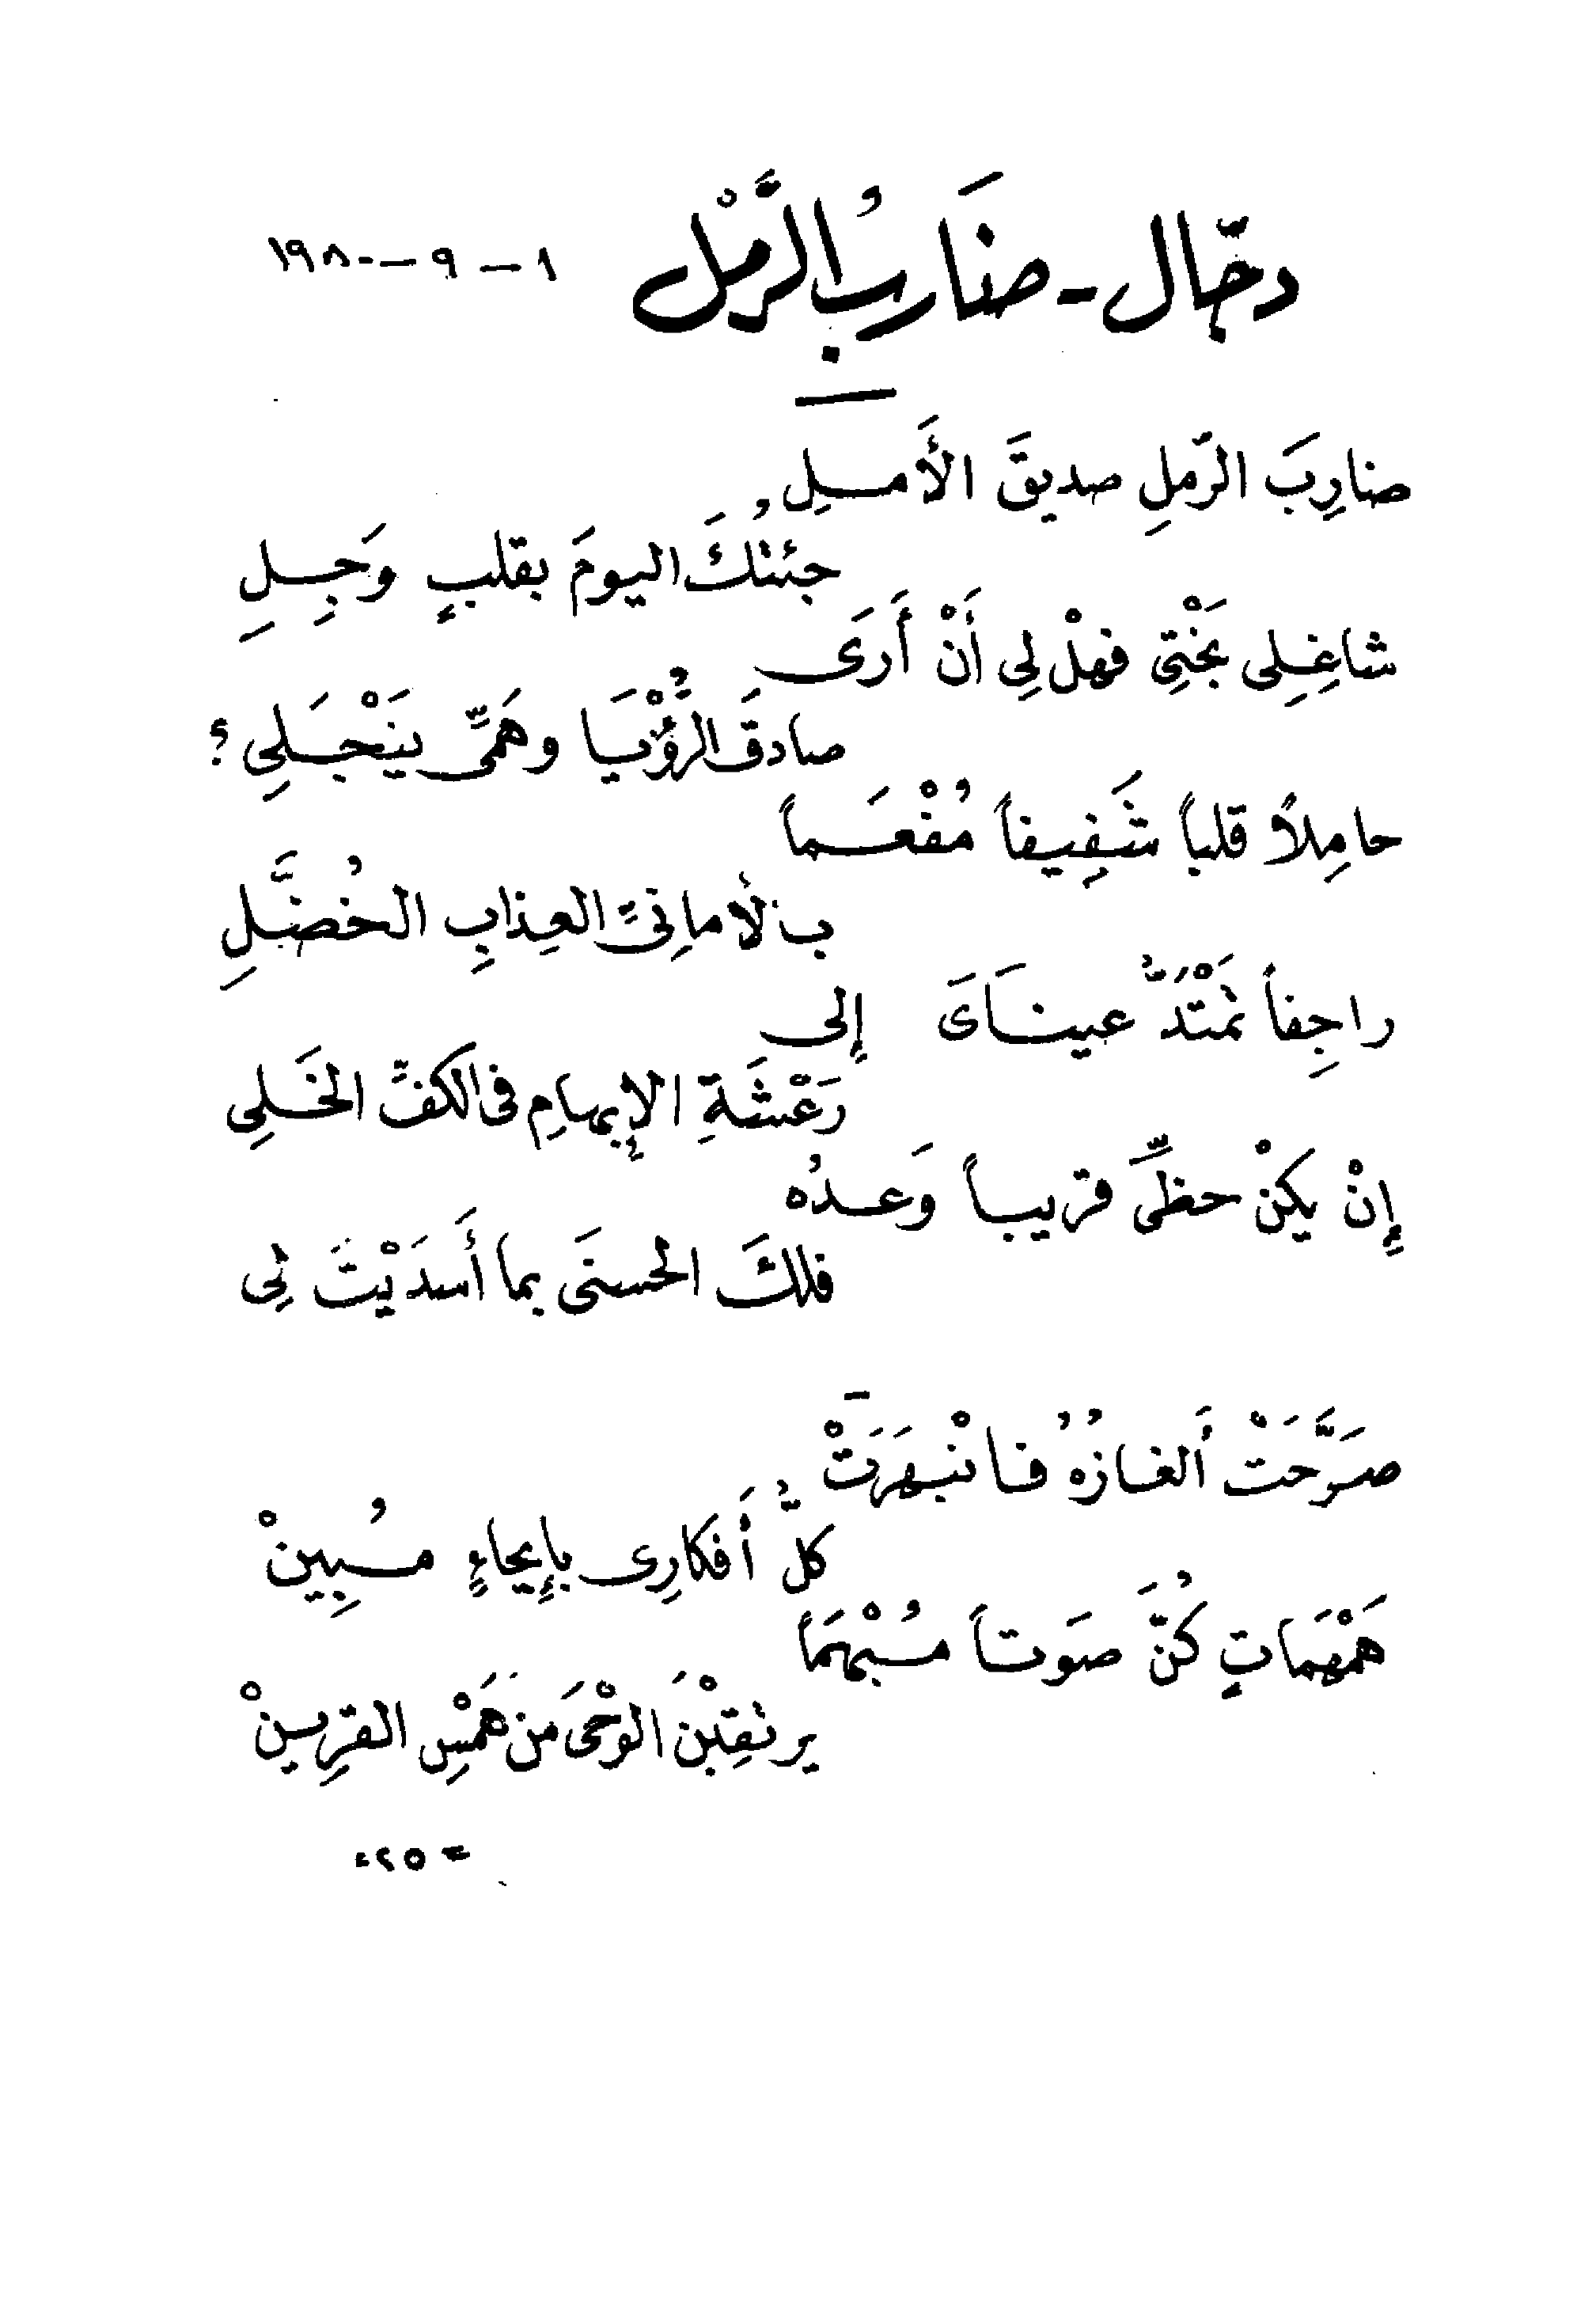 دجّال - ضَارِبُ الرَّمْل ١ - ٩ - ١٩٨٠
ضارِبَ الرّملِ صديقَ الأَمـلِ
جئتُكَ اليومَ بقلبٍ وَجِـلِ
شاغِـلِى بَخْتِى فهلْ لِى أَنْ أَرَى
صادقَ الرُّؤْيَـا وهَمِّى يَنْجَـلِى ؟
حامِلاً قلباً شَـفِيفاً مُفْعَـماً
بالأمانِىِّ العِذابِ الخُضَّـلِ
راجِفاً تَمْتَدُّ عينَـاىَ إِلى
رَعْشَـةِ الإِبهامِ فى الكفِّ الخَـلِى
إِنْ يكنْ حظِّى قريباً وَعـدُه
فلكَ الحسنَى بما أَسدَيْتَ لِى
صَرَّحَتْ أَلغـازُهُ فـانْبـهَرَتْ
كلُّ أَفكارِى بإِيحاءٍ مُـبِينْ
هَمْهَمَاتٍ كُنَّ صَوتـاً مُـبْهَمَاً
يرتقِبْنَ الوَحْىَ من هَمْسِ القرِينْ